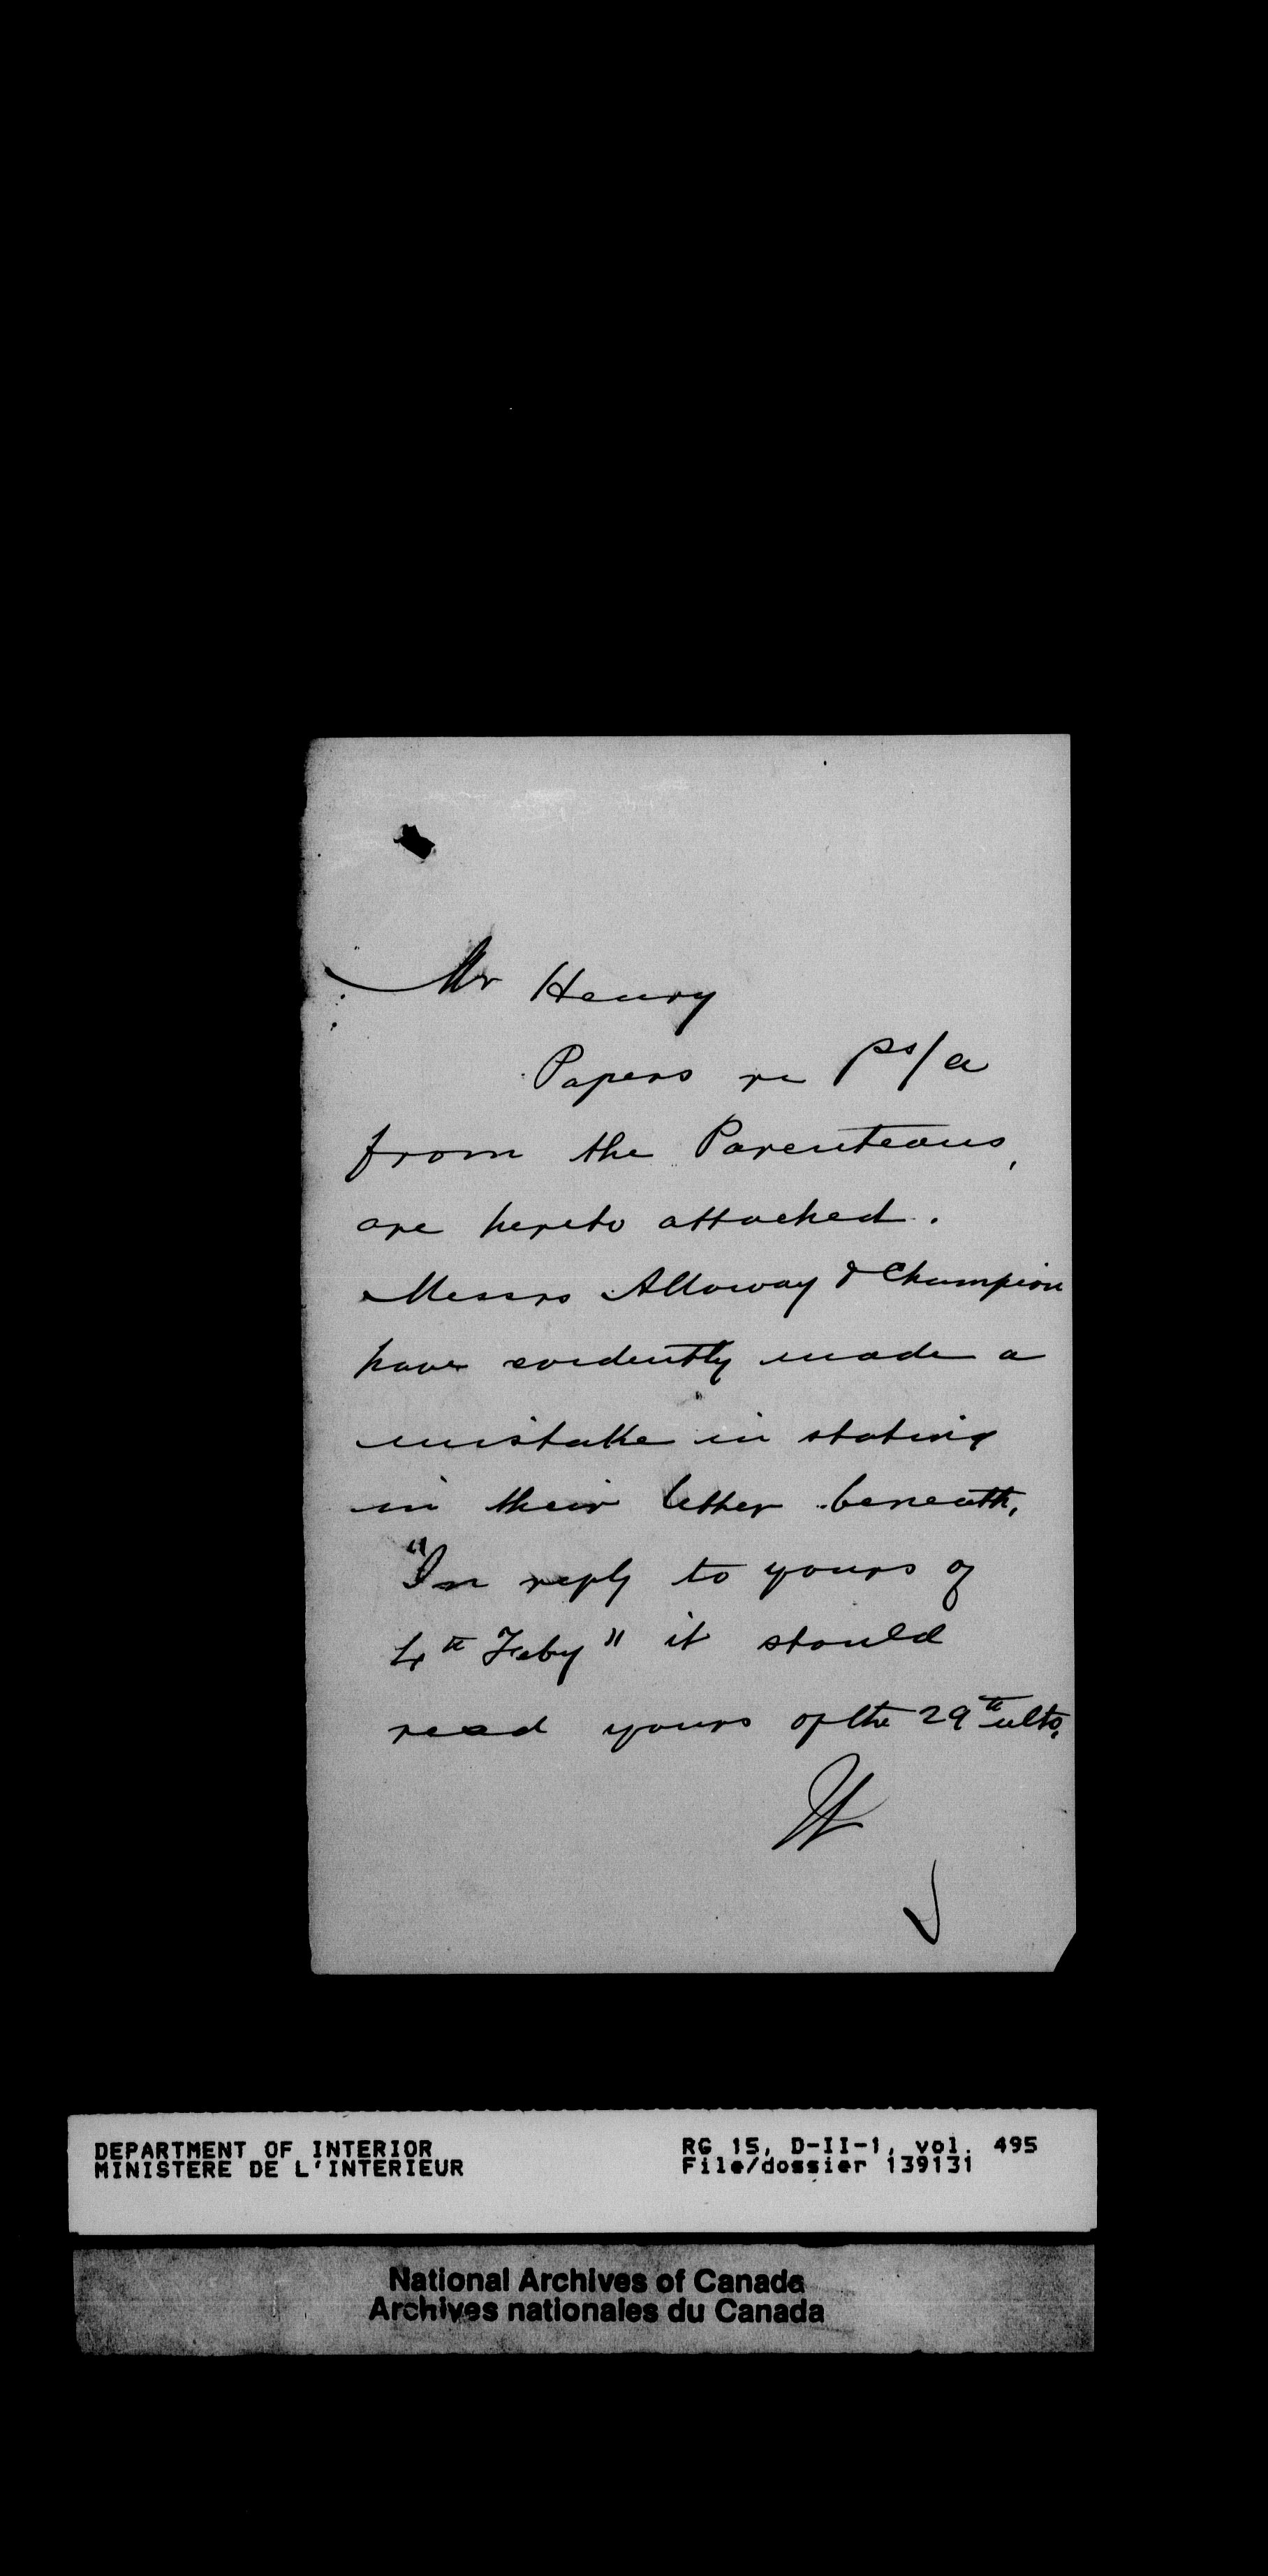 Mr Henry
Papers re ps/a
from the Parenteaus,
are hereto attached.
Messrs Alloway & Champion
have evidently made a
mistake in stating
in their letter beneath,
"In reply to yours of
4th Feby" it should
read yours of the 29th ulto.
DEPARTMENT OF INTERIOR
MINISTERE DE L'INTERIEUR
RG 15, D-II-1, vol. 495
File/dossier 139131
National Archives of Canada
Archives nationales du Canada